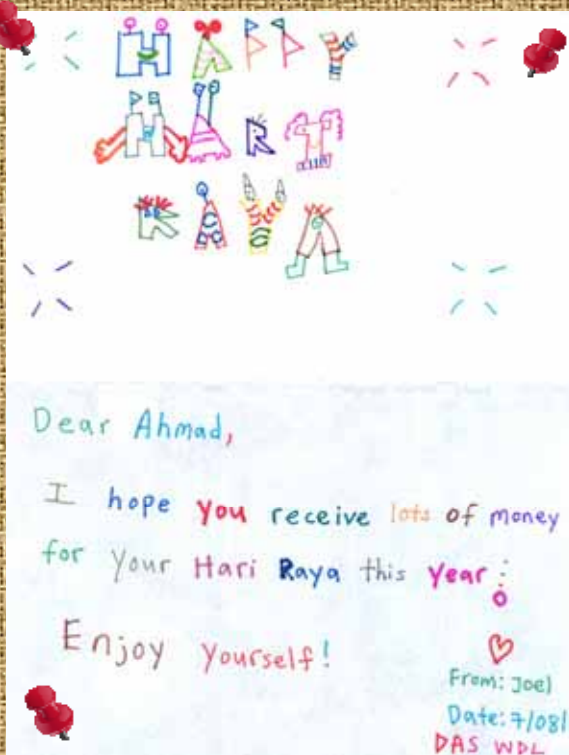 HAPPY
HARI
RAYA
Dear Ahmad,
I hope you receive lots of money
for your Hari Raya this year!
Enjoy yourself!
From: Joel
Date: 7/08/
DAS WDL